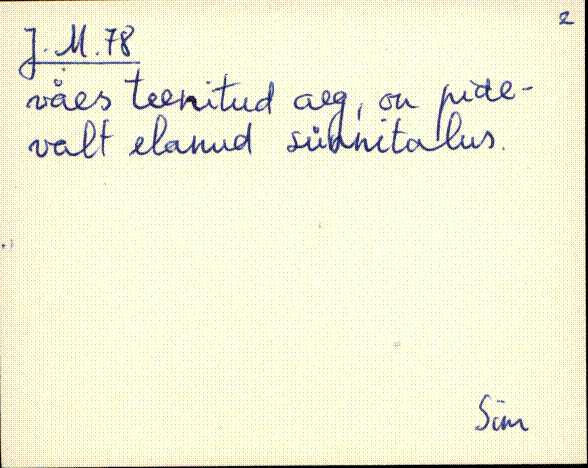 2
J. M. 78
väes teenitud aeg, on pide-
valt elanud sünnitalus.
Sim